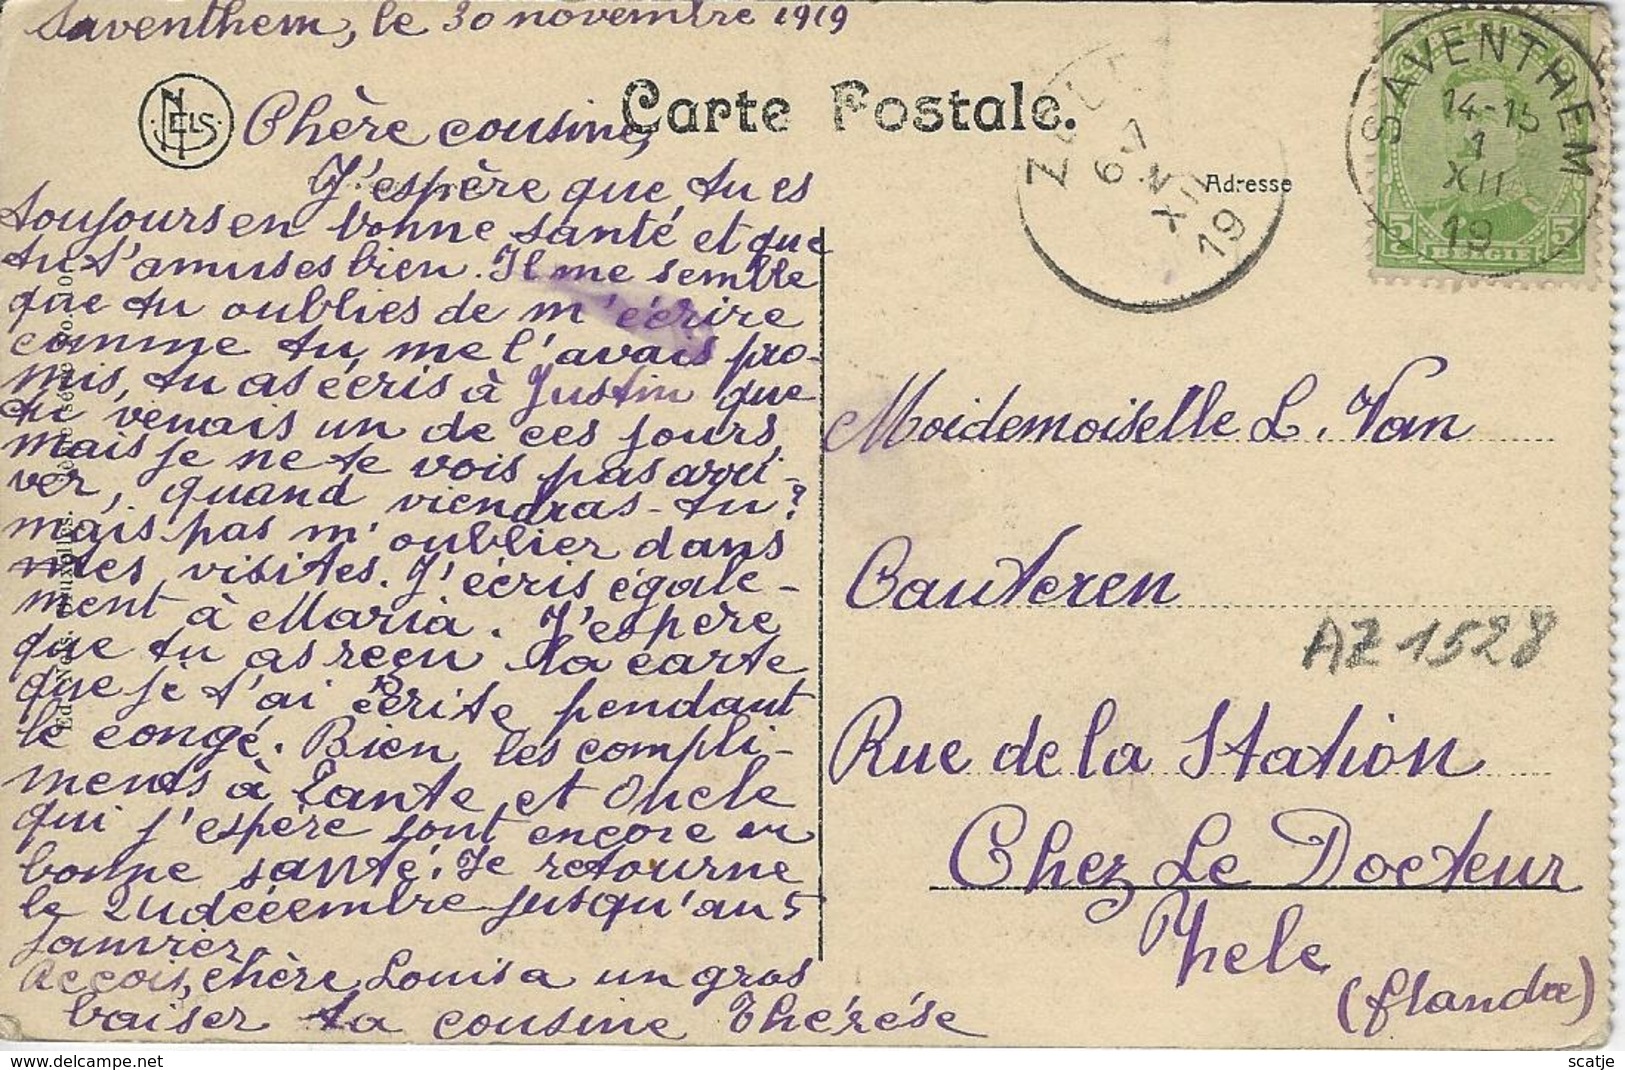 Saventhem, le 30 novembre 1919
NELS
Chère cousine,
Carte Postale.
J'espère que, tu es
toujours en bonne santé et que
tu t'amuses bien. Il me semble
que tu oublies de m'écrire
comme tu me l'avais pro-
mis, tu as écris à Justin que
tu venais un de ces jours,
mais je ne te vois pas arri-
ver, quand viendras-tu?
mais pas m'oublier dans
mes visites. J'écris égale-
ment à Maria. J'espere
que tu as reçu la carte
que je t'ai écrite pendant
le congé. Bien les compli-
ments à Tante et Oncle
qui j'espère sont encore en
bonne santé. Je retourne
le 24 décembre jusqu'au 5
janvier
Reçois, chère Louisa un gros
baiser ta cousine Thérése
Adresse
SAVENTHEM
14-15
1
XII
19
5 BELGIE 5
6-7
XII
19
Moidemoiselle L. Van
Cauteren
AZ 1528
Rue de la Station
Chez Le Docteur
(flandre)
scatje